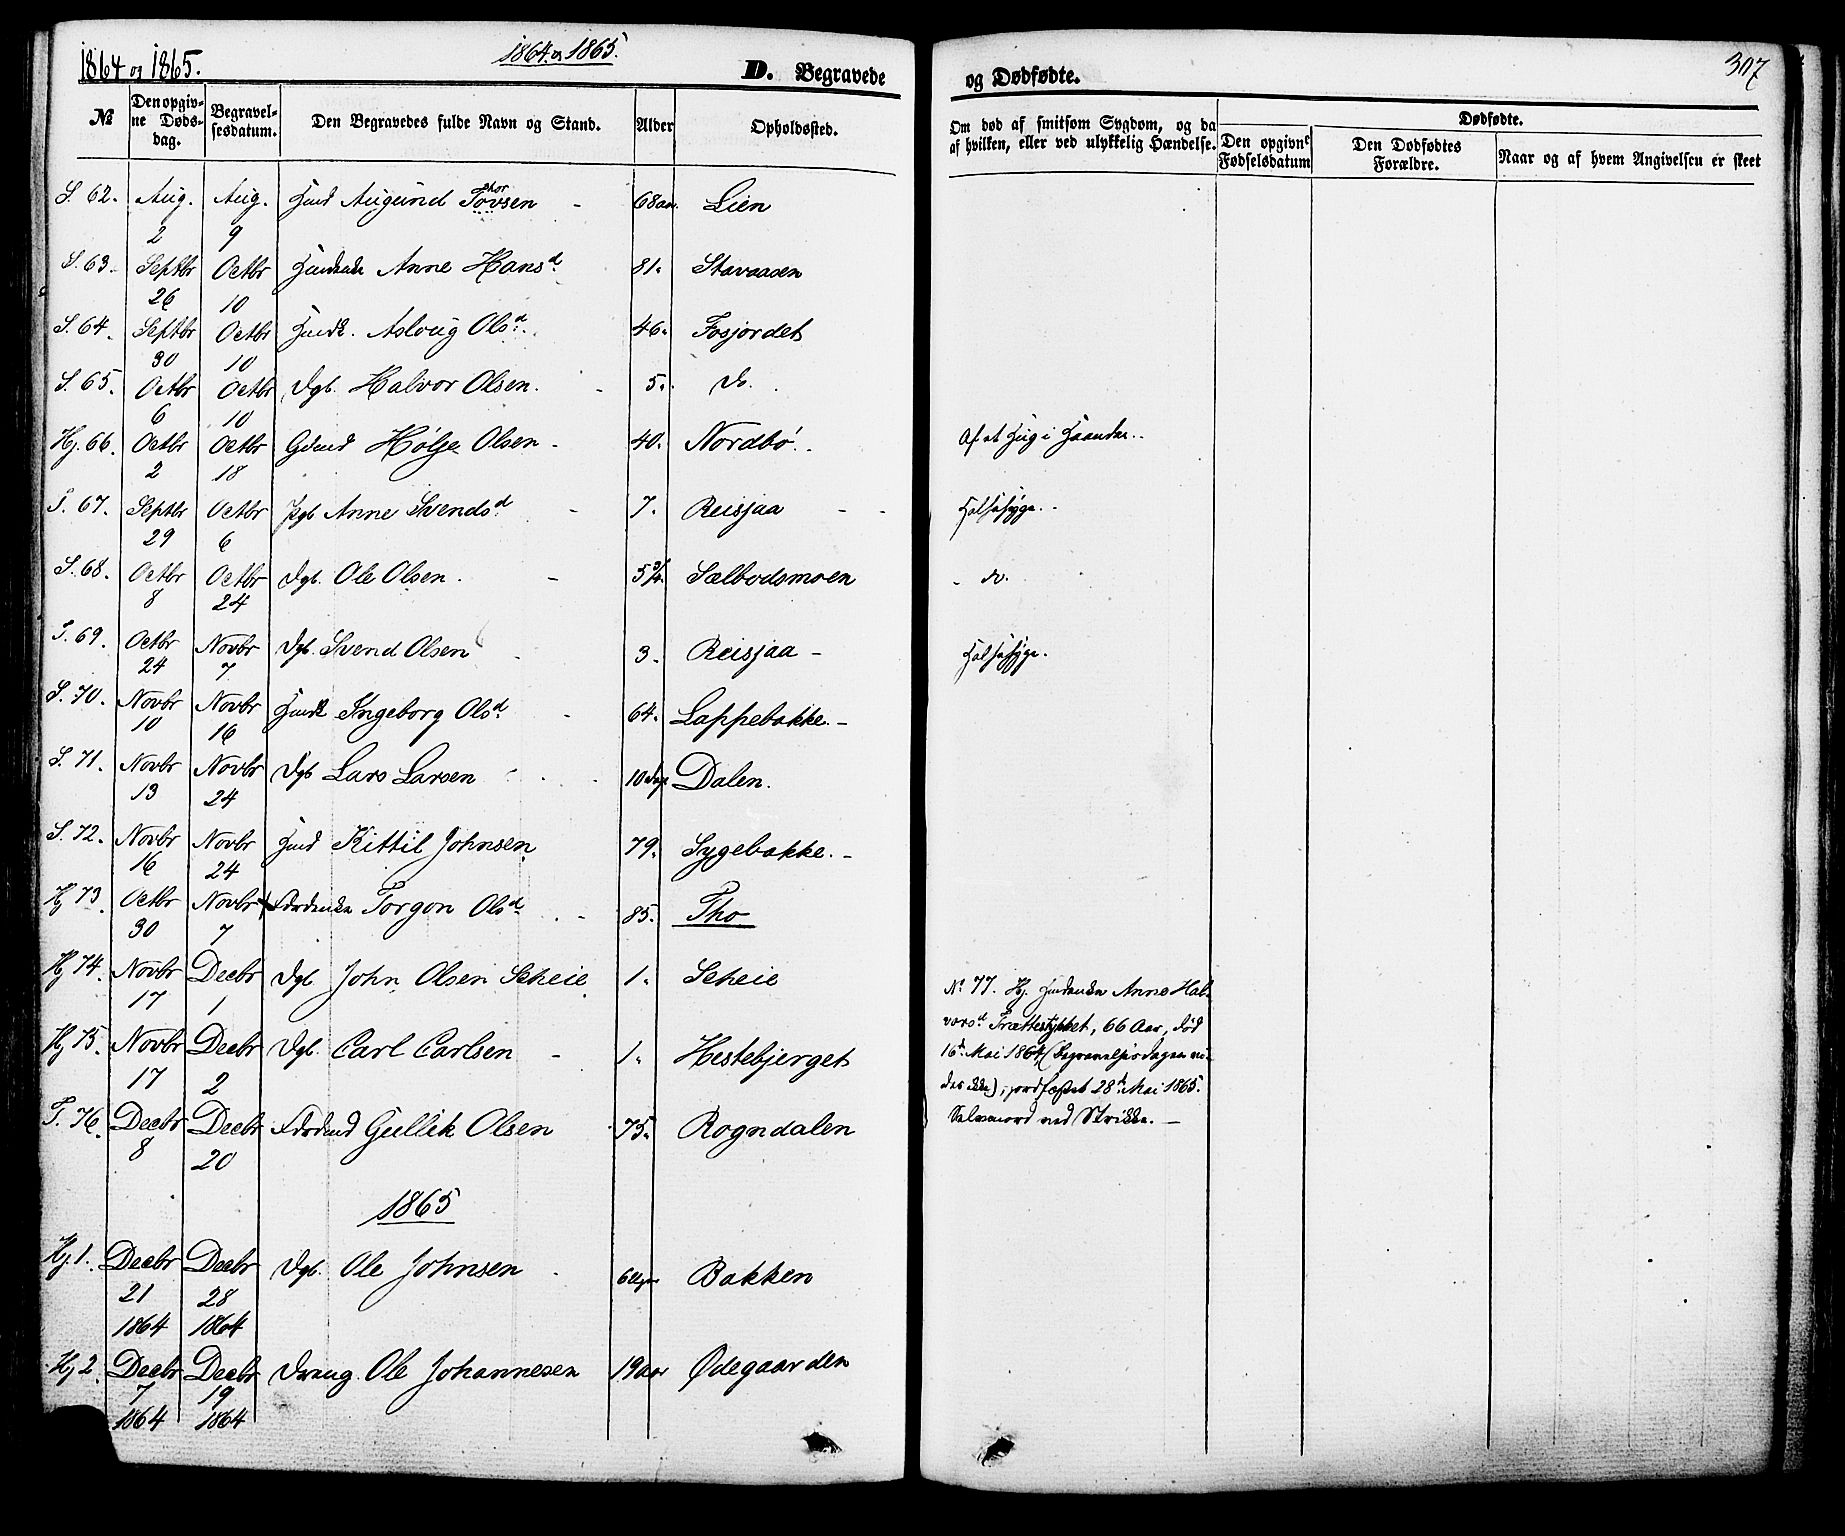 1864 og 1865.
1864 og 1865.
D. Begravede
og Dødfødte.
307
№
Den opgivne Dødsdag.
Begravelsesdatum.
Den Begravedes fulde Navn og Stand.
Alder
Opholdssted.
Om død af smitsom Sygdom, og da
af hvilken, eller ved ulykkelig Hændelse.
Dødfødte.
Den opgivne Fødselsdatum
Den Dødfødtes Forældre.
Naar og af hvem Angivelsen er skeet
S. 62. Aug. 2 Aug. 9 Augund Tovsen 68 aar. Lien
S. 63. Septbr 26 Octbr 10 Anne Hansd. 81. Stavaasen
S. 64. Septbr 30 Octbr 10 Aslaug Olsd. 46. Fosjordet
S. 65. Octbr 6 Octbr 10 Dgb. Halvor Olsen. 5. do.
Hj. 66. Octbr 2 Octbr 18 Gdmd Hølje Olsen 40. Nordbø. Af et Hug i Haanden.
T. 67. Septbr 29 Octbr 6 Pgb Anne Svendsd. 7. Reisjaa Halssyge.
S. 68. Octbr 8 Octbr 24 Dgb. Ole Olsen. 5 3/4. Sælbodsmoen do.
T. 69. Octbr 24 Novbr 7 Dgb. Svend Olsen 3. Reisjaa Halssyge.
S. 70. Novbr 10 Novbr 16 Ingeborg Olsd. 64. Lappebakke.
S. 71. Novbr 13 Novbr 24 Dgb Lars Larsen 10 Dage Dalen.
S. 72. Novbr 16 Novbr 24 Kittil Johnsen 79. Sygebakke.
Hj 73. Octbr 30 Novbr 7 Torgon Olsd. 85. Tho
Hj 74. Novbr 17 Decbr 1 Dgb John Olsen Scheie 1. Scheie
Hj 75. Novbr 17 Decbr 2 Dgb. Carl Carlsen 1. Hestebjerget
T. 76. Decbr 8 Decbr 20 Gullik Olsen 75. Rogndalen
No 77. Hj. Anne Hal-
vorsd. Trættestykket, 66 Aar, død
16de Mai 1864 (Begravelsesdagen vi-
des ikke), jordfæstet 28de Mai 1865.
Selvmord ved Strikke.
1865
Hj. 1. Decbr 21 1864 Decbr 28 1864 Dgb. Ole Johnsen 6 Uger Bakken
Hj 2. Decbr 7 1864 Decbr 19 1864 Dreng Ole Johannesen 19 aar Ødegaarden